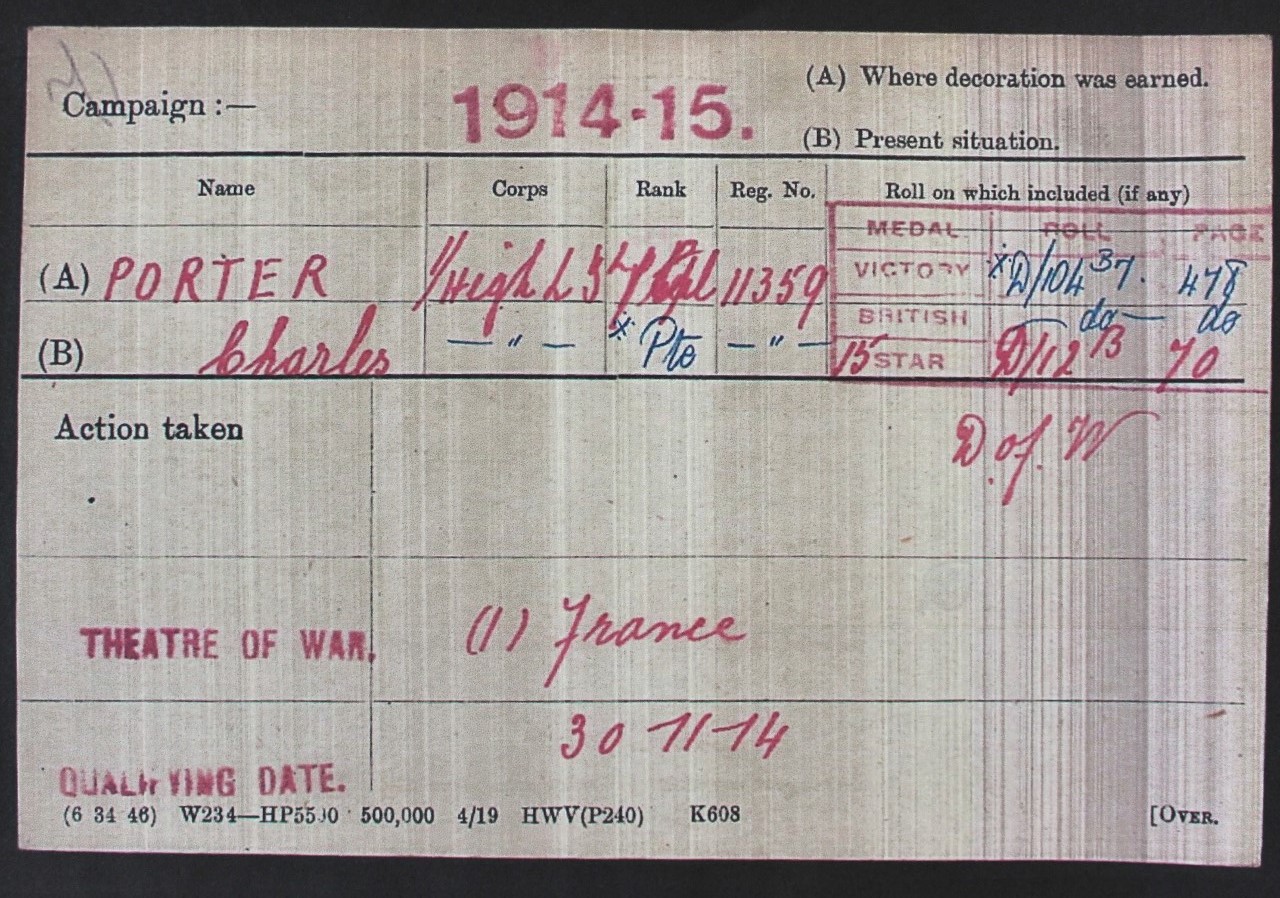 Campaign :— 1914-15. (A) Where decoration was earned.
(B) Present situation.
Name Corps Rank Reg. No. Roll on which included (if any)
MEDAL. ROLL PAGE
(A) PORTER 1/High L I 11359 VICTORY *D/104 B7. 478
BRITISH — do — do
(B) Charles — " — * Pte — " — 15 STAR D/12 B 70
Action taken D. of. W
THEATRE OF WAR. (1) France
QUALIFYING DATE. 30-11-14
(6 34 46) W234—HP5590 500,000 4/19 HWV(P240) K608 [OVER.